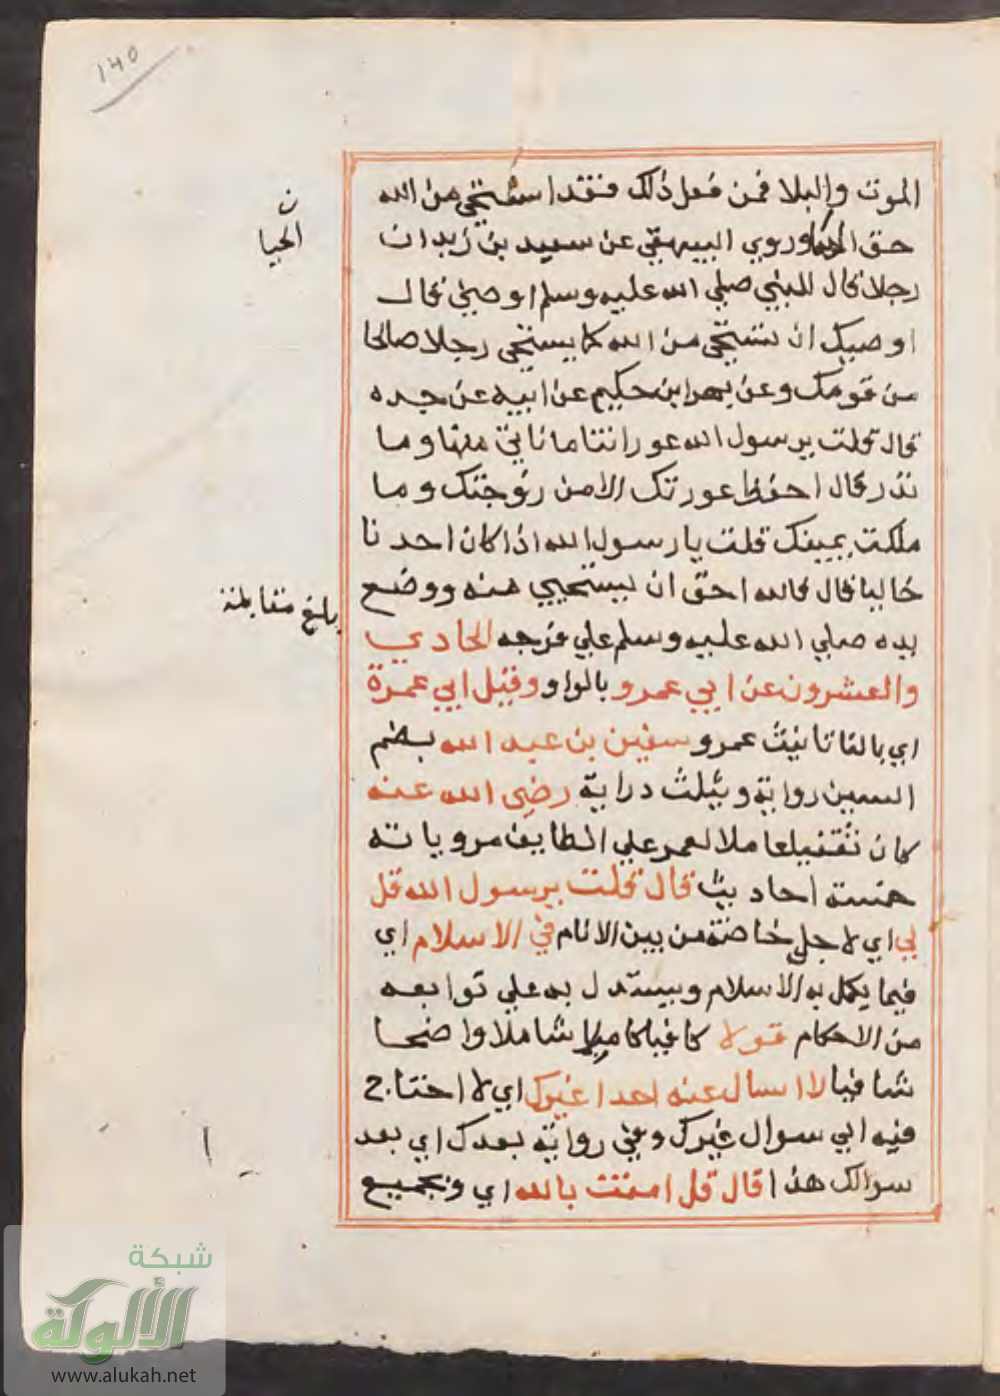 ١٣٥
الموت والبلا فمن فعل ذلك فقد استحيى من الله
حق الحيا وروي البيهقي عن سعيد بن زيد ان
ن
الحيا
رجلا قال للنبي صلي الله عليه وسلم اوصيني قال
اوصيك ان تستحي من الله كما يستحي رجلا صالحا
من قومك وعن بهز ابن حكيم عن ابيه عن جده
قال قلت يرسول الله عوراتنا ما ناتي منها وما
نذر قال احفظ عورتك الا من زوجتك وما
ملكت يمينك قلت يا رسول الله اذا كان احدنا
خاليا قال فالله احق ان يستحيي منه ووضع
بلغ مقابلة
يده صلي الله عليه وسلم علي فرجه الحادي
والعشرون عن ابي عمرو بالواو وقيل ابي عمرة
اي بالتا تانيث عمرو سفين بن عبد الله بضم
السين رواية ويثلث دراية رضي الله عنه
كان ثقفيا عاملا لعمر علي الطايف مروياته
خمسة احاديث قال قلت يرسول الله قل
لي اي لاجلي خاصة من بين الانام في الاسلام اي
فيما يكمل به الاسلام ويستدل به علي توابعه
من الاحكام قولا كافيا كاملا شاملا واضحا
شافيا لا اسال عنه احدا غيرك اي لا احتاج
فيه الي سوال غيرك وفي رواية بعدك اي بعد
سوالك هذا قال قل امنت بالله اي وبجميع
شبكة
الألوكة
www.alukah.net